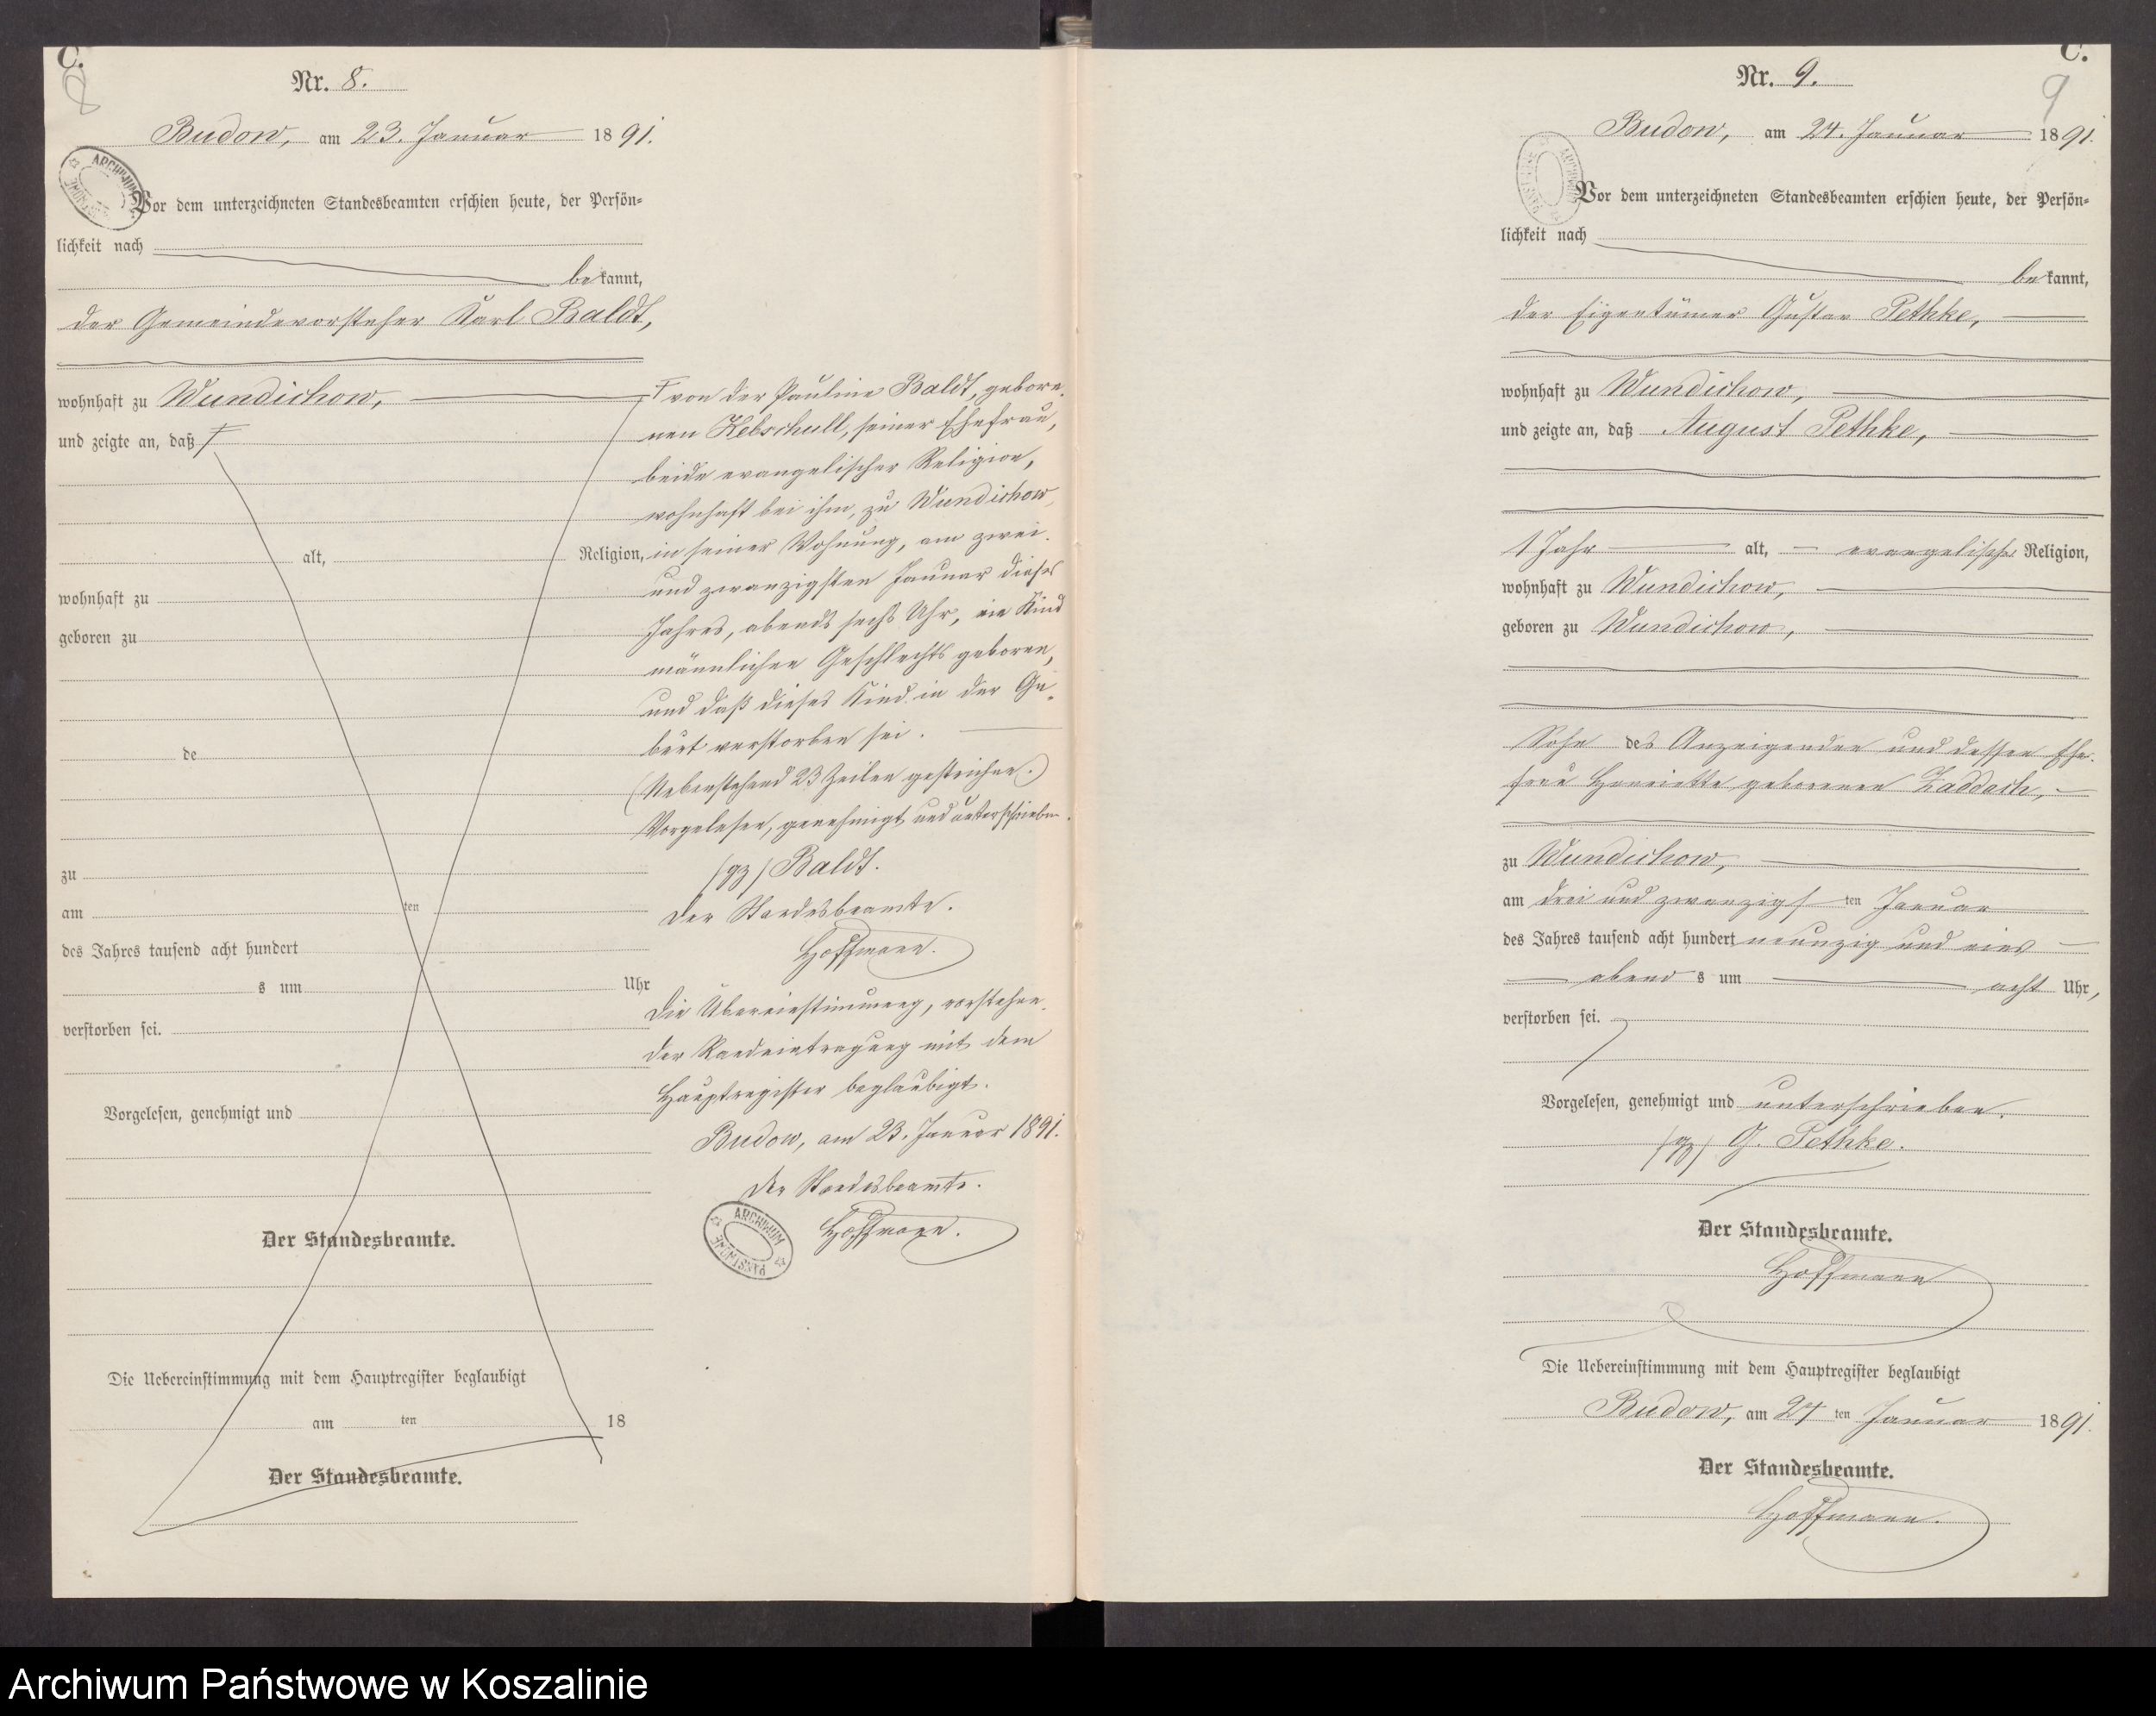 C.
8
Nr. 8.
Budow, am 23. Januar 1891.
Vor dem unterzeichneten Standesbeamten erschien heute, der Persön-
lichkeit nach
bekannt,
der Gemeindevorsteher Karl Baldt,
wohnhaft zu Wundichow,
und zeigte an, daß
alt, Religion,
wohnhaft zu
geboren zu
de
zu
am ten
des Jahres tausend acht hundert
s um Uhr
verstorben sei.
Vorgelesen, genehmigt und
Der Standesbeamte.
Die Uebereinstimmung mit dem Hauptregister beglaubigt
am ten 18
Der Standesbeamte.
von der Pauline Baldt, gebore-
nen Kebschull, seiner Ehefrau,
beide evangelischer Religion,
wohnhaft bei ihm, zu Wundichow,
in seiner Wohnung, am zwei-
und zwanzigsten Januar dieses
Jahres, abends sechs Uhr, ein Kind
männlichen Geschlechts geboren,
und daß dieses Kind in der Ge-
burt verstorben sei.
(Nebenstehend 23 Zeilen gestrichen.)
Vorgelesen, genehmigt und unterschrieben.
(gz) Baldt.
Der Standesbeamte.
Hoffmann.
Die Übereinstimmung, vorstehen-
der Randeintragung mit dem
Hauptregister beglaubigt.
Budow, am 23. Januar 1891.
Der Standesbeamte.
Hoffmann.
ARCHIWUM PAŃSTWOWE
C.
9
Nr. 9.
Budow, am 24. Januar 1891.
Vor dem unterzeichneten Standesbeamten erschien heute, der Persön-
lichkeit nach
bekannt,
der Eigentümer Gustav Pethke,
wohnhaft zu Wundichow,
und zeigte an, daß August Pethke,
1 Jahr alt, evangelischer Religion,
wohnhaft zu Wundichow,
geboren zu Wundichow,
Sohn des Anzeigenden und dessen Ehe-
frau Henriette geborenen Zaddach,
zu Wundichow,
am drei und zwanzigsten Januar
des Jahres tausend acht hundert neunzig und eins
abends um acht Uhr,
verstorben sei.
Vorgelesen, genehmigt und unterschrieben.
(gz) G. Pethke.
Der Standesbeamte.
Hoffmann
Die Uebereinstimmung mit dem Hauptregister beglaubigt
Budow, am 24 ten Januar 1891.
Der Standesbeamte.
Hoffmann.
Archiwum Państwowe w Koszalinie